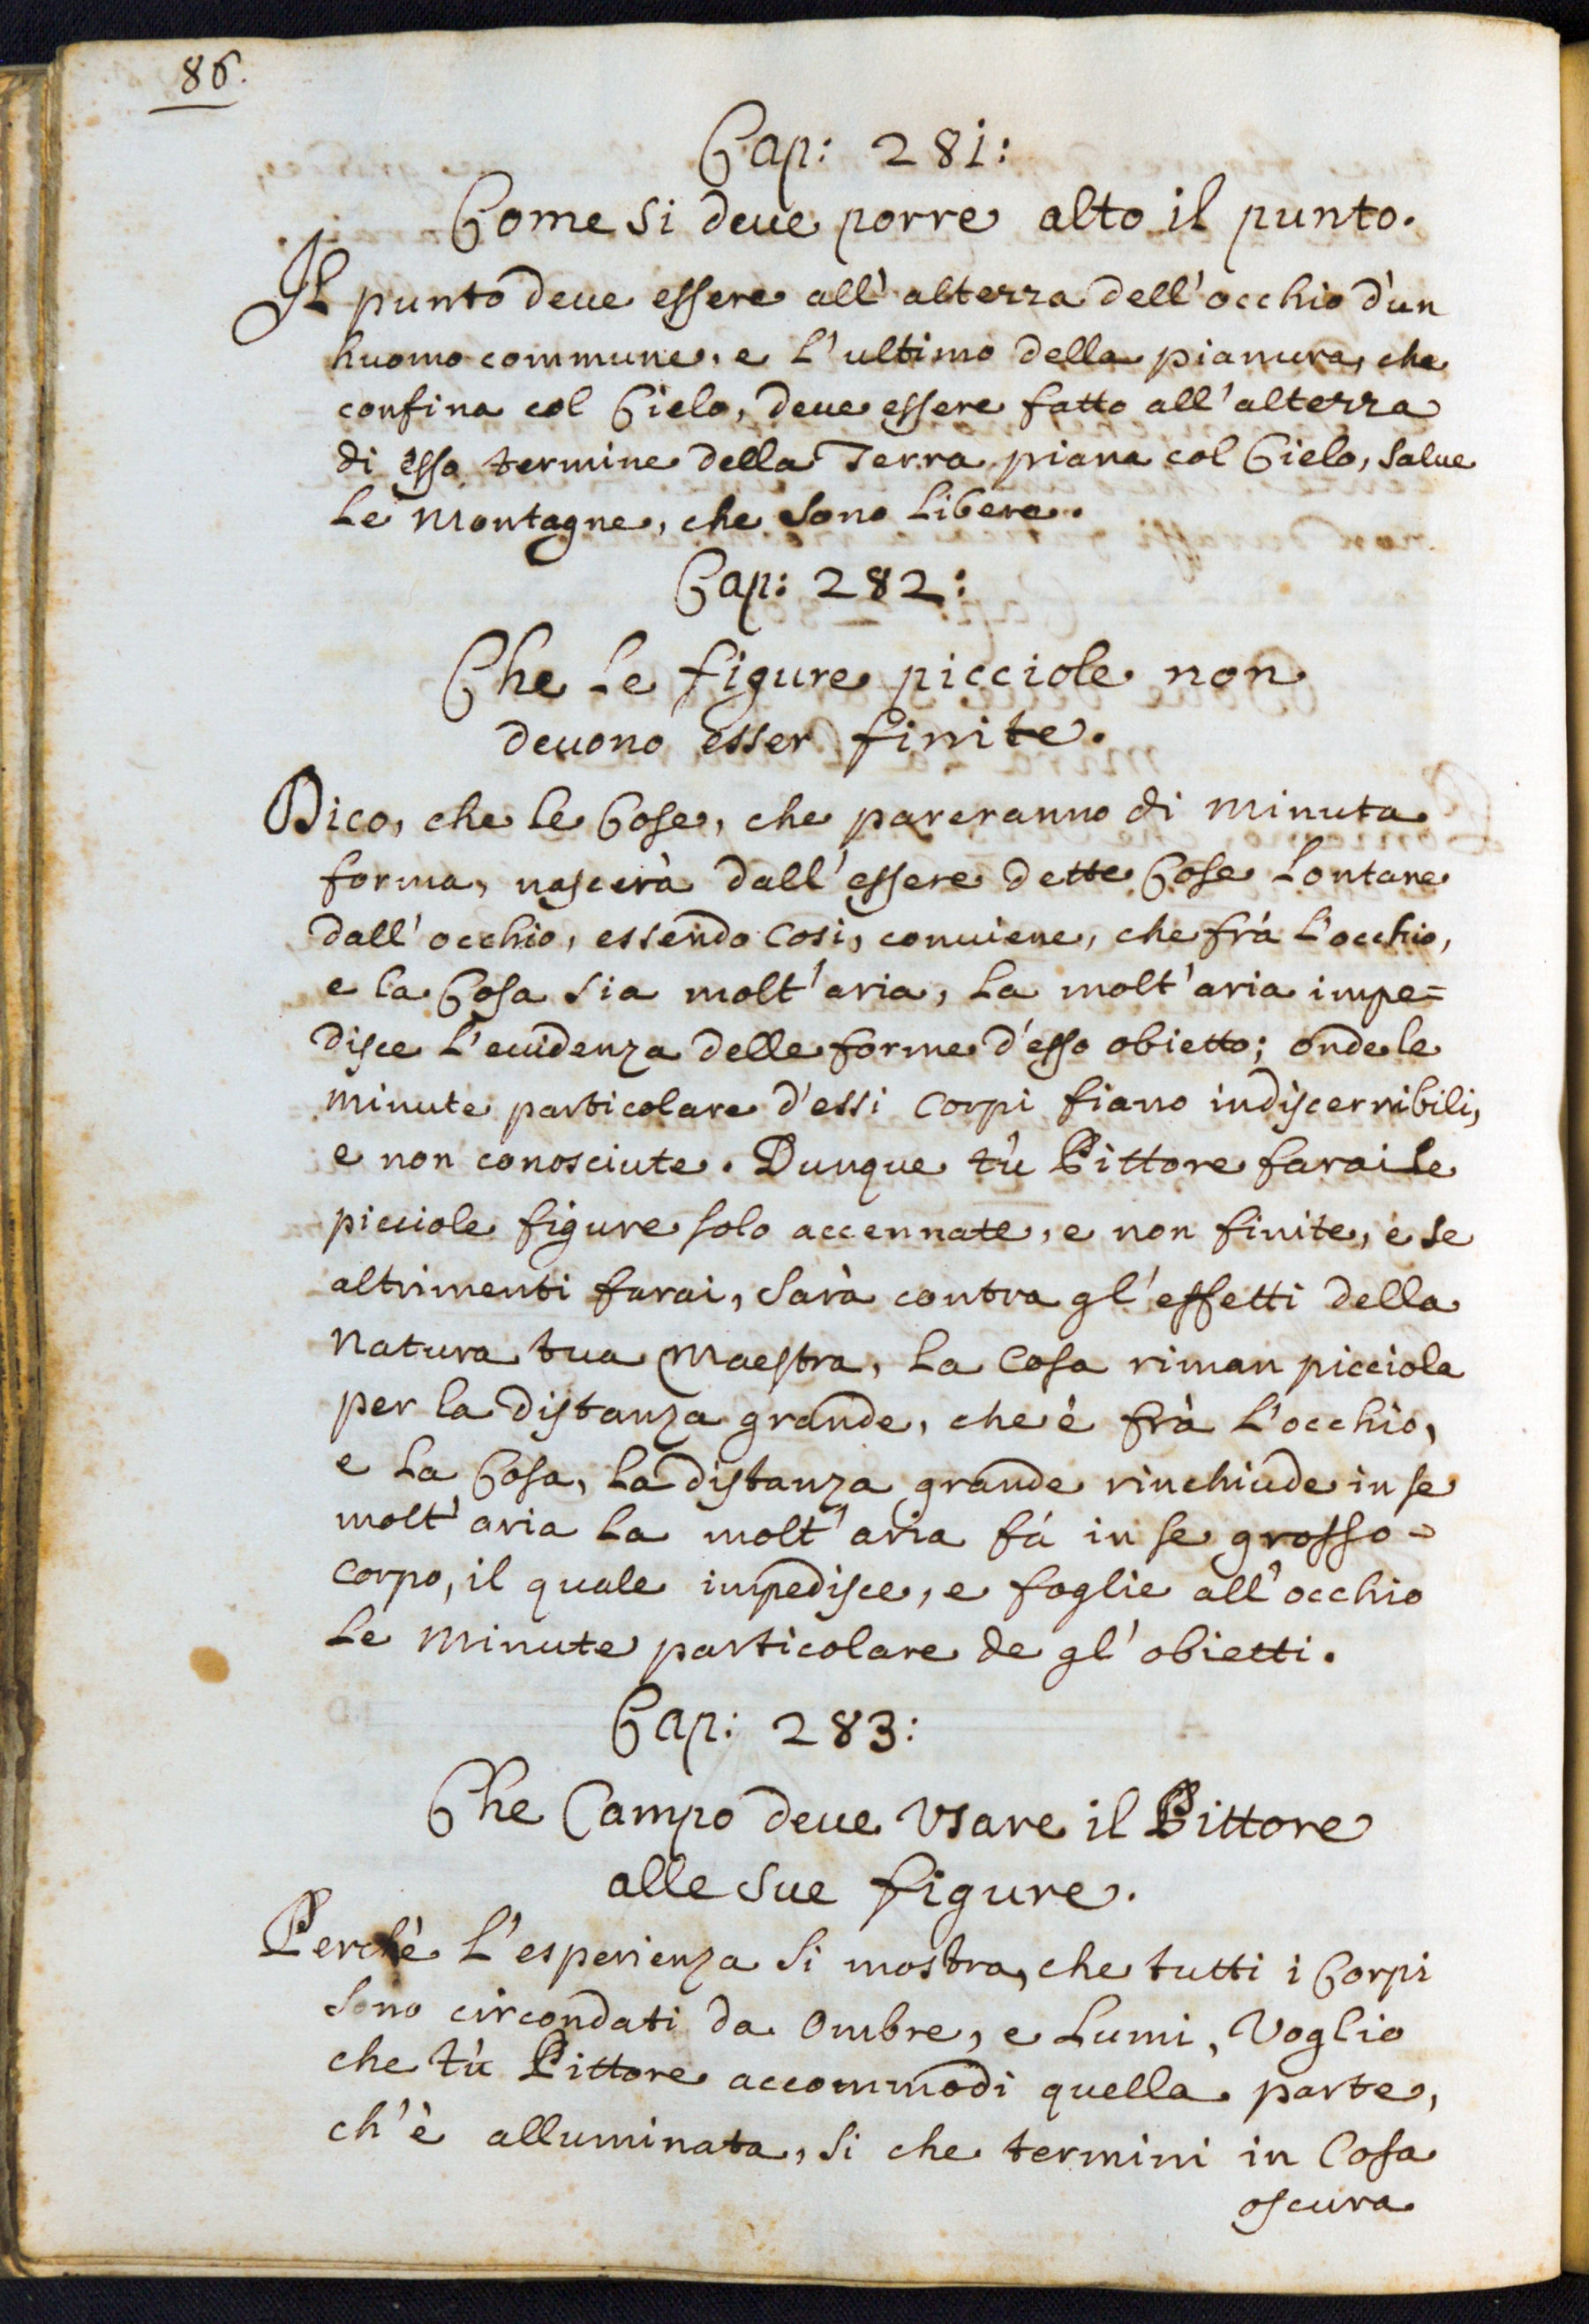 86.
Cap: 281:
Come si deue porre alto il punto.
Il punto deue essere all'alterza dell'occhio d'un
huomo commune, e l'ultimo della pianura, che
confina col Cielo, deue essere fatto all'alterza
di esso termine della Terra piana col Cielo, salue
le Montagne, che sono libere.
Cap: 282:
Che le figure picciole non
deuono esser finite.
Dico, che le Cose, che pareranno di minuta
forma, nascerà dall'essere dette Cose lontane
dall'occhio, essendo così, conuiene, che frà l'occhio,
e la Cosa sia molt'aria, la molt'aria impe=
disce l'euidenza delle forme d'esso obietto; onde le
minute particolare d'essi corpi fiano indiscernibili,
e non conosciute. Dunque tù Pittore farai le
picciole figure solo accennate, e non finite, e se
altrimenti farai, sarà contra gl'effetti della
natura tua Maestra, la cosa riman picciola
per la distanza grande, che è frà l'occhio,
e la Cosa, la distanza grande rinchiude in se
molt'aria la molt'aria fà in se grosso=
corpo, il quale impedisce, e foglie all'occhio
le minute particolare de gl'obietti.
Cap: 283:
Che Campo deue Vsare il Pittore
alle sue figure.
Perchè l'esperienza si mostra, che tutti i Corpi
sono circondati da Ombre, e Lumi, Voglio
che tù Pittore accommodi quella parte,
ch'è alluminata, si che termini in Cosa
oscura